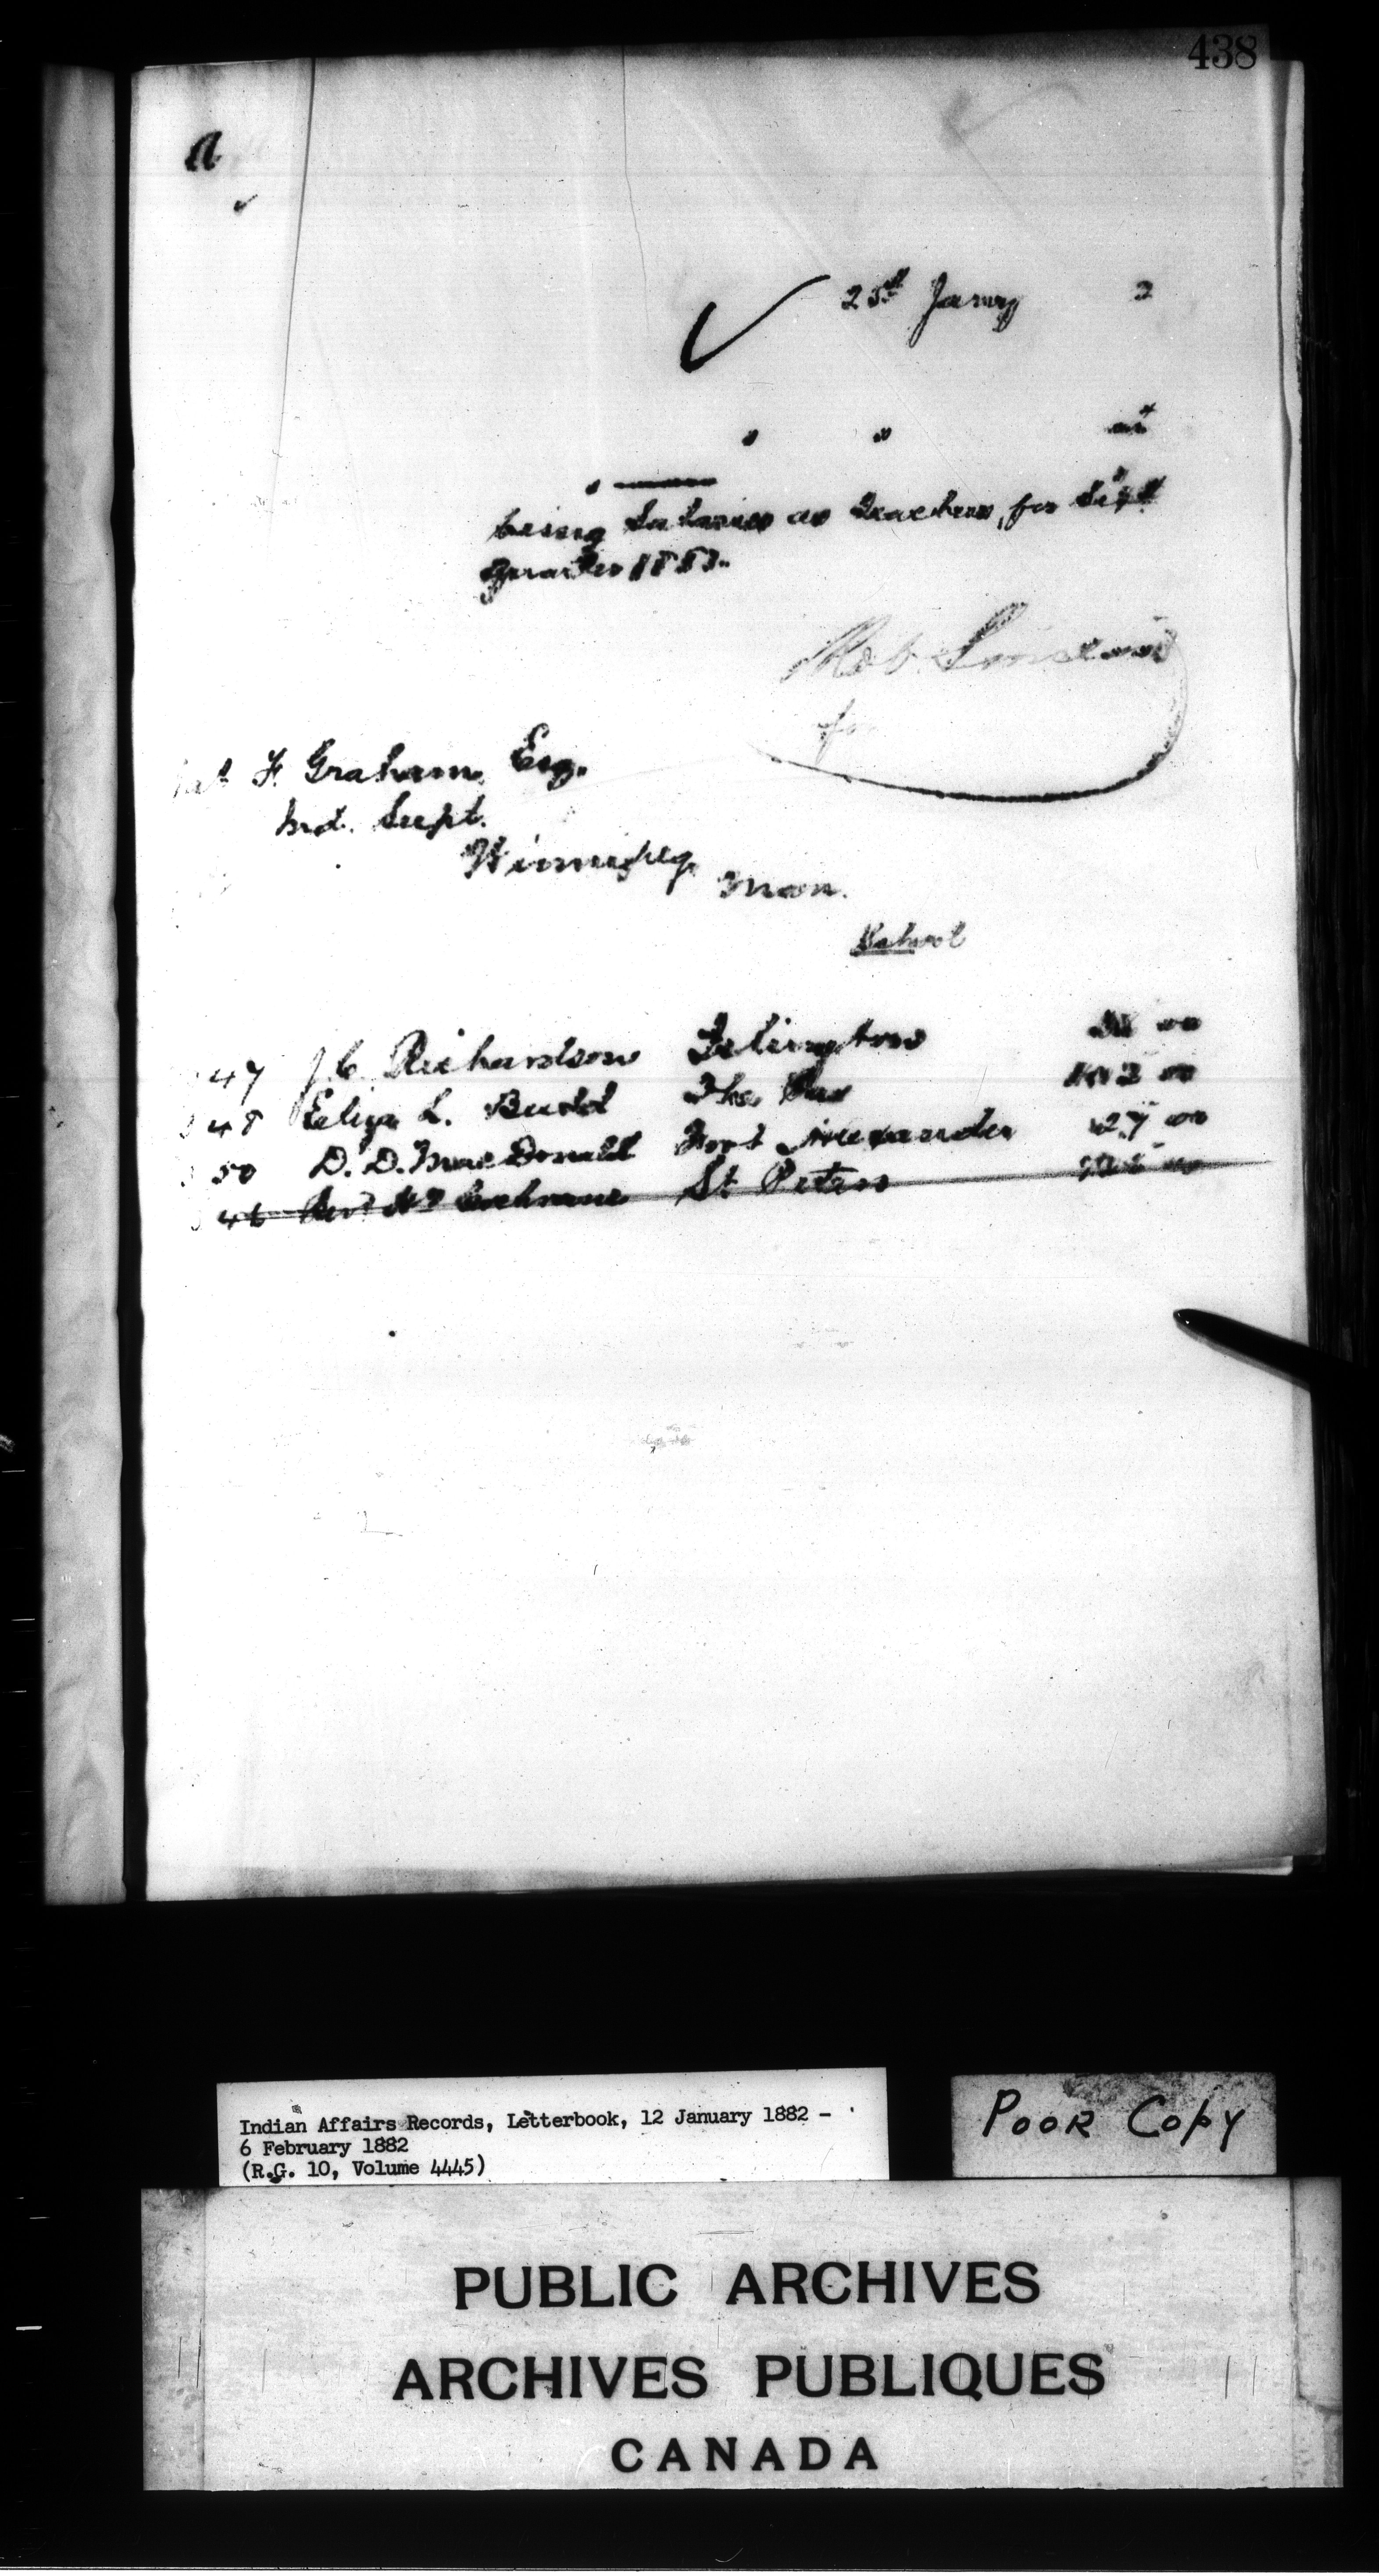 438
a
25th Janry 2
" " at
"
being Salaries as Teachers, for Sept
Quarter 1881.
Rob. Sinclair
for
F. Graham, Esq.
Ind. Supt.
Winnipeg,
Man.
School
47 J. C. Richardson Islington 00
48 Eliza L. Budd The Pas 00
50 D. D. MacDonald Fort Alexander 27 00
46 Revd Cochrane St. Peters
Indian Affairs Records, Letterbook, 12 January 1882 -
6 February 1882
(R.G. 10, Volume 4445)
POOR COPY
PUBLIC ARCHIVES
ARCHIVES PUBLIQUES
CANADA